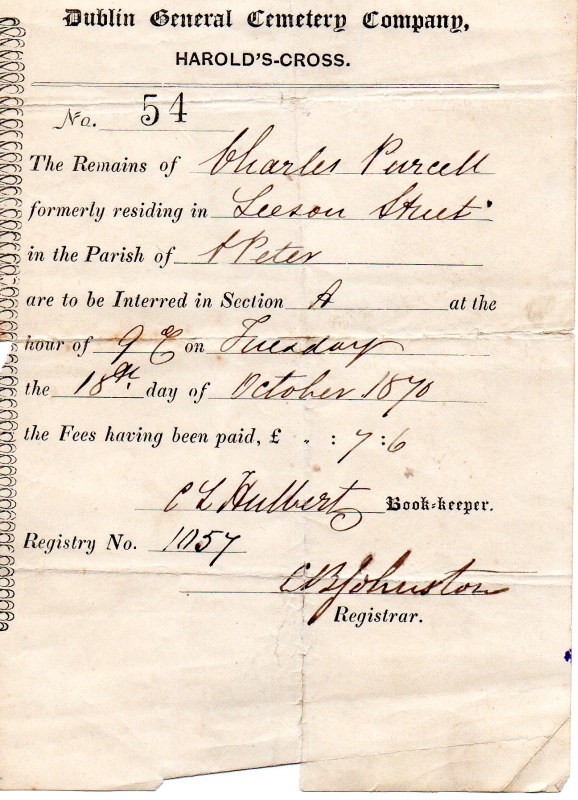 Dublin General Cemetery Company,
HAROLD'S-CROSS.
No. 54
The Remains of Charles Purcell
formerly residing in Leeson Street
in the Parish of St Peter
are to be Interred in Section A at the
hour of 9 on Tuesday
the 18th day of October 1870
the Fees having been paid, £ " : 7 : 6
C L Hulbert Book-keeper.
Registry No. 1057
C B Johnston
Registrar.